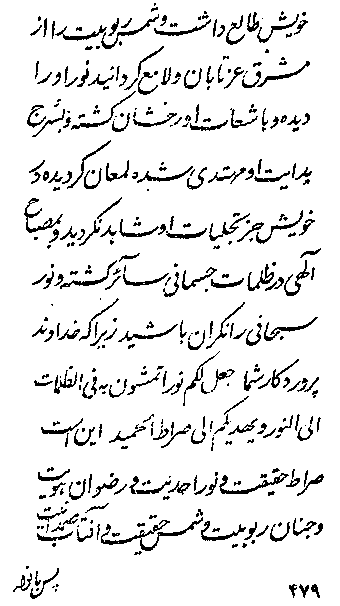 خویش طالع داشت و شمس ربوبیت را از
مشرق عز تابان و لامع گردانید نور او را
دیده و باشعات او رخشان گشته و بسرج
هدایت او مهتدی شده لمعان گردیده در
خویش جز تجلیات او مشاهد نگردید و بمصباح
آلهی در ظلمات جسمانی سائر گشته و نور
سبحانی را نگران باشید زیرا که خداوند
پروردگار شما جعل لکم نورا تمشون به فی الظلمات
الی النور و یهدیکم الی صراط حمید این است
صراط حقیقت و نور احدیت و رضوان هویت
و جنان ربوبیت و شمس حقیقت و آفتاب صمدانیت
۴۷۹